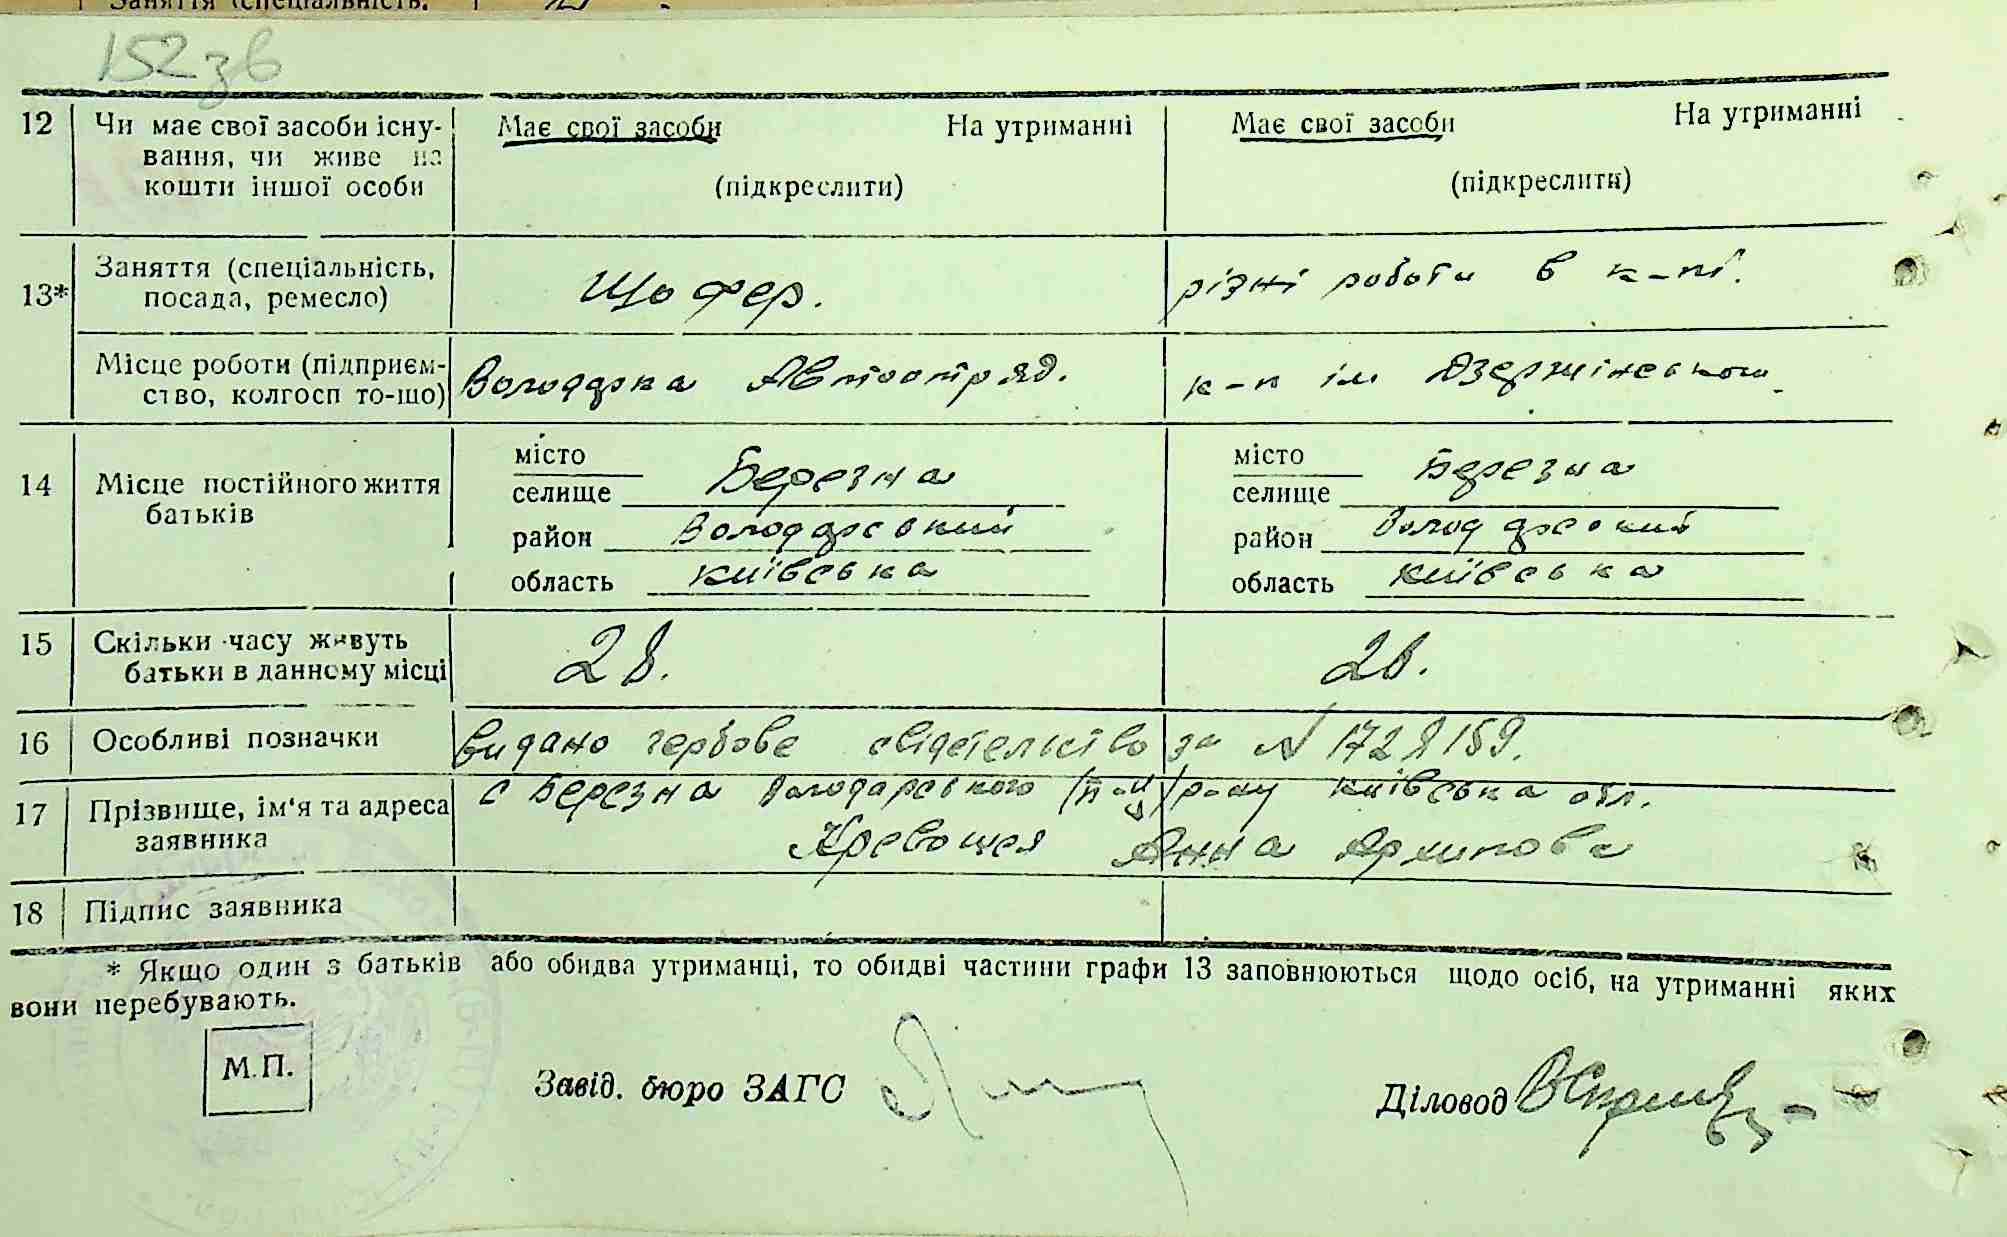 Заняття (спеціальність,
152 зв
12 Чи має свої засоби існу- Має свої засоби На утриманні Має свої засоби На утриманні
вання, чи живе на
кошти іншої особи (підкреслити) (підкреслити)
13* Заняття (спеціальність, Шофер. різні роботи в к-пі.
посада, ремесло)
Місце роботи (підприєм- Володарка Автоотряд. к-п ім Дзержінського
ство, колгосп то-що)
14 Місце постійного життя батьків
місто Березна місто Березна
селище селище
район Володарський район Володарский
область київська область київська
15 Скільки часу живуть
батьки в данному місці 28. 28.
16 Особливі позначки видано гербове свідетельство за N 172
17 Прізвище, ім'я та адреса с Березна Володарського р-ну київська обл.
заявника Анна Архипова
18 Підпис заявника
* Якщо один з батьків або обидва утриманці, то обидві частини графи 13 заповнюються щодо осіб, на утриманні яких
вони перебувають.
М.П. Завід. бюро ЗАГС Діловод